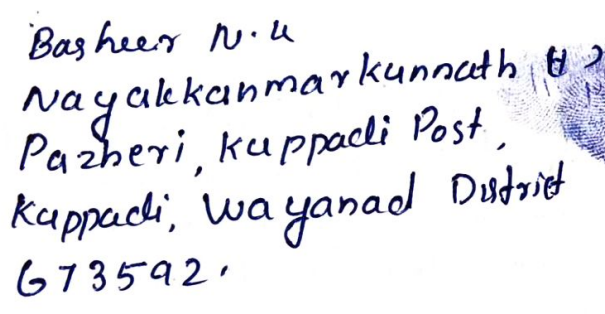 Basheer N.K
Nayakkanmarkunnath (H)
Pazheri, Kuppadi Post,
Kuppadi, Wayanad District
673592.